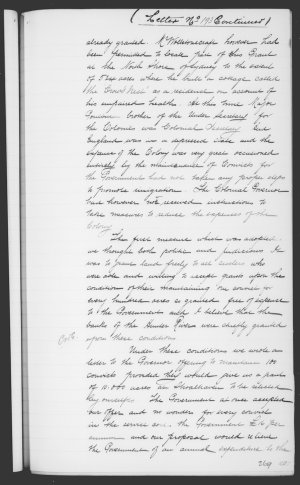 (Letter No 193 Continued)
already granted. Mr Wollstonecraft however had
been permitted to locate part of this Grant
on the North Shore of Sydney to the extent
of 500 acres where he built a cottage called
the Crows Nest as a residence on account of
his impaired health. At this time Major
Goulburn brother of the Under Secretary for
the Colonies was Colonial Secretary and
England was in a depressed state and the
expense of the Colony was very great occasioned
entirely by the maintenance of Convicts for
the Government had not taken any proper steps
to promote emigration. The Colonial Governor
had however now received instructions to
take measures to reduce the expenses of the
Colony.
The first measure which was adopted
we thought both politic and judicious. It
was to grant lands freely to all settlers who
were able and willing to accept grants upon the
condition of their maintaining one convict for
every hundred acres so granted free of expense
to the Government and I believe that the
banks of the Hunter River were chiefly granted
upon these conditions.
Under these conditions we wrote a
letter to the Governor offering to maintain 100
convicts provided they would give us a grant
of 10.000 acres in Shoalhaven to be selected
by ourselves. The Government at once accepted
our offer and no wonder for every convict
in the service cost the Government £16 per
annum and our proposal would relieve
the Government of an annual expenditure to the